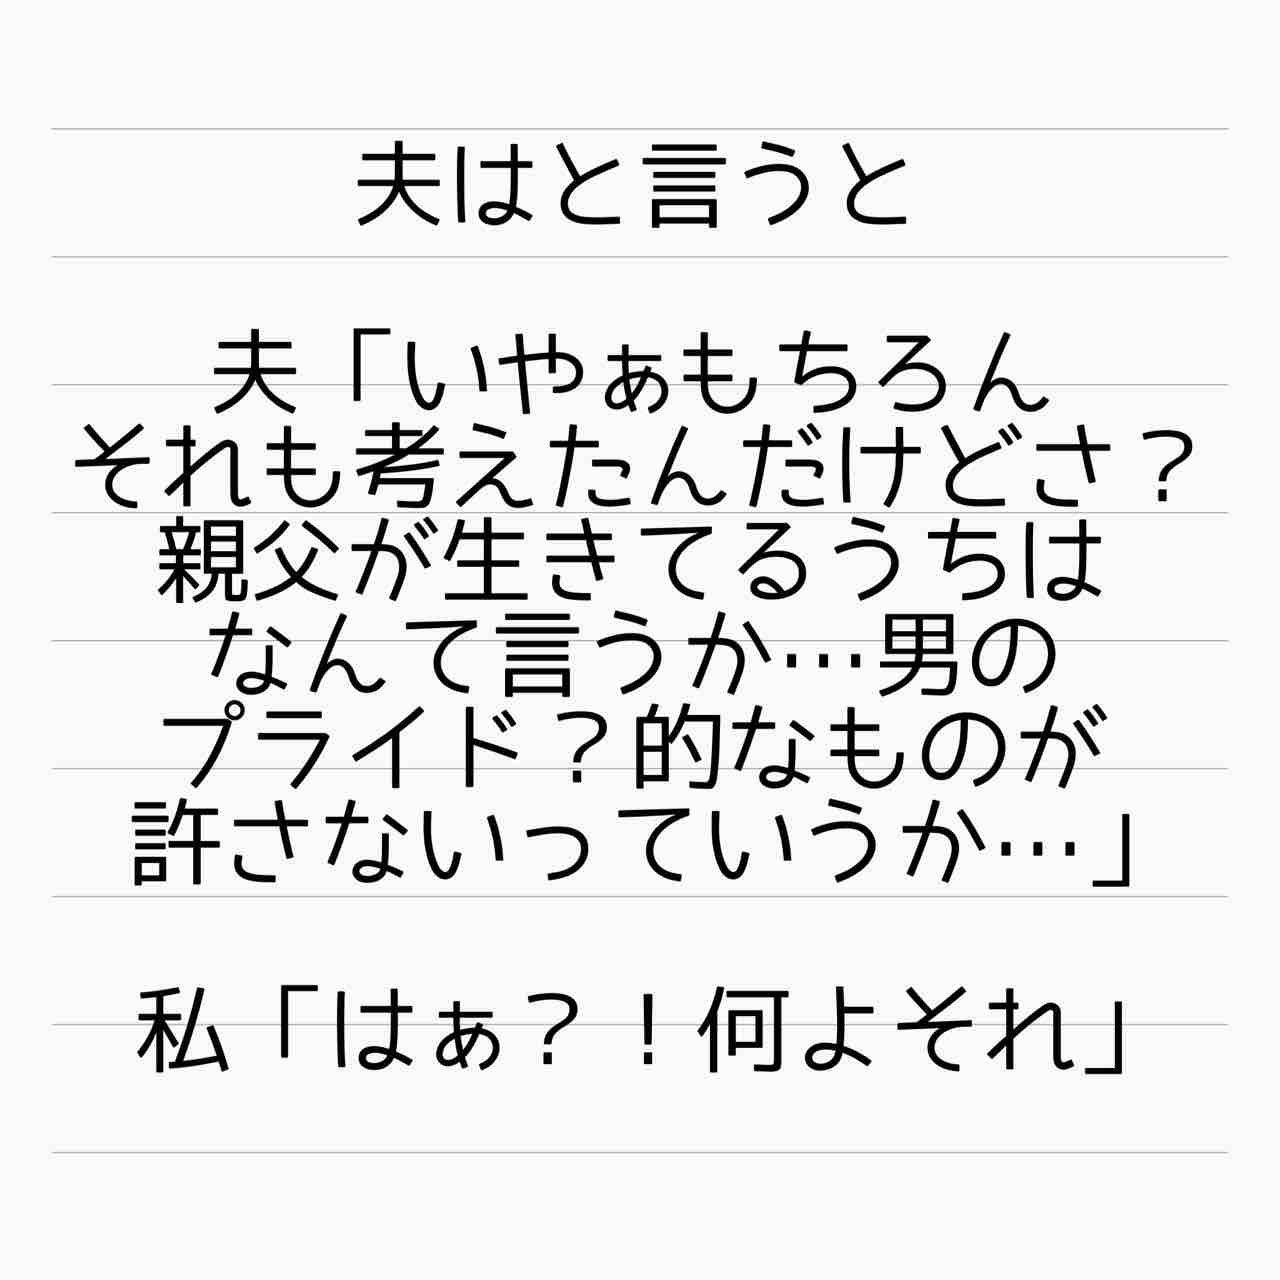 夫はと言うと
夫「いやぁもちろん
それも考えたんだけどさ？
親父が生きてるうちは
なんて言うか…男の
プライド？的なものが
許さないっていうか…」
私「はぁ？！何よそれ」